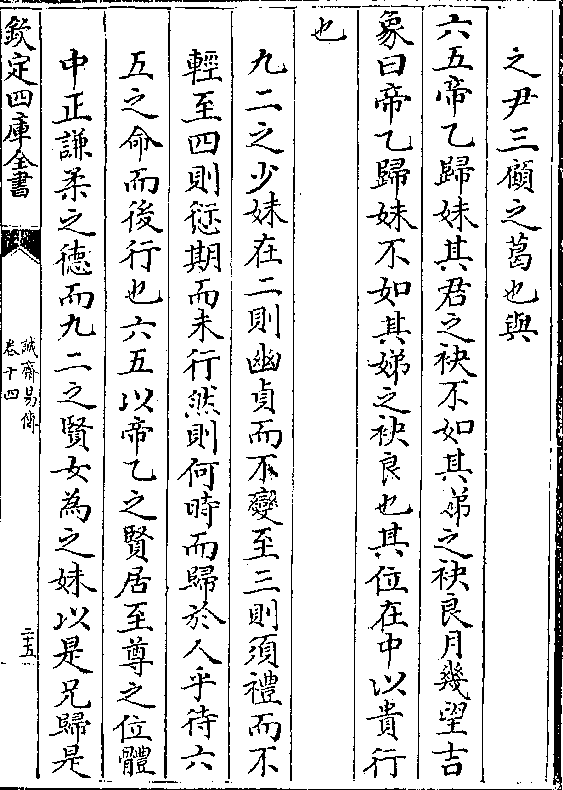 之尹三顧之葛也與
六五帝乙歸妹其君之袂不如其娣之袂良月幾望吉
象曰帝乙歸妹不如其娣之袂良也其位在中以貴行
也
九二之少妹在二則幽貞而不變至三則須禮而不
輕至四則愆期而未行然則何時而歸於人乎待六
五之命而後行也六五以帝乙之賢居至尊之位體
中正謙柔之德而九二之賢女為之妹以是兄歸是
欽定四庫全書
誠齋易傳
卷十四
二十五